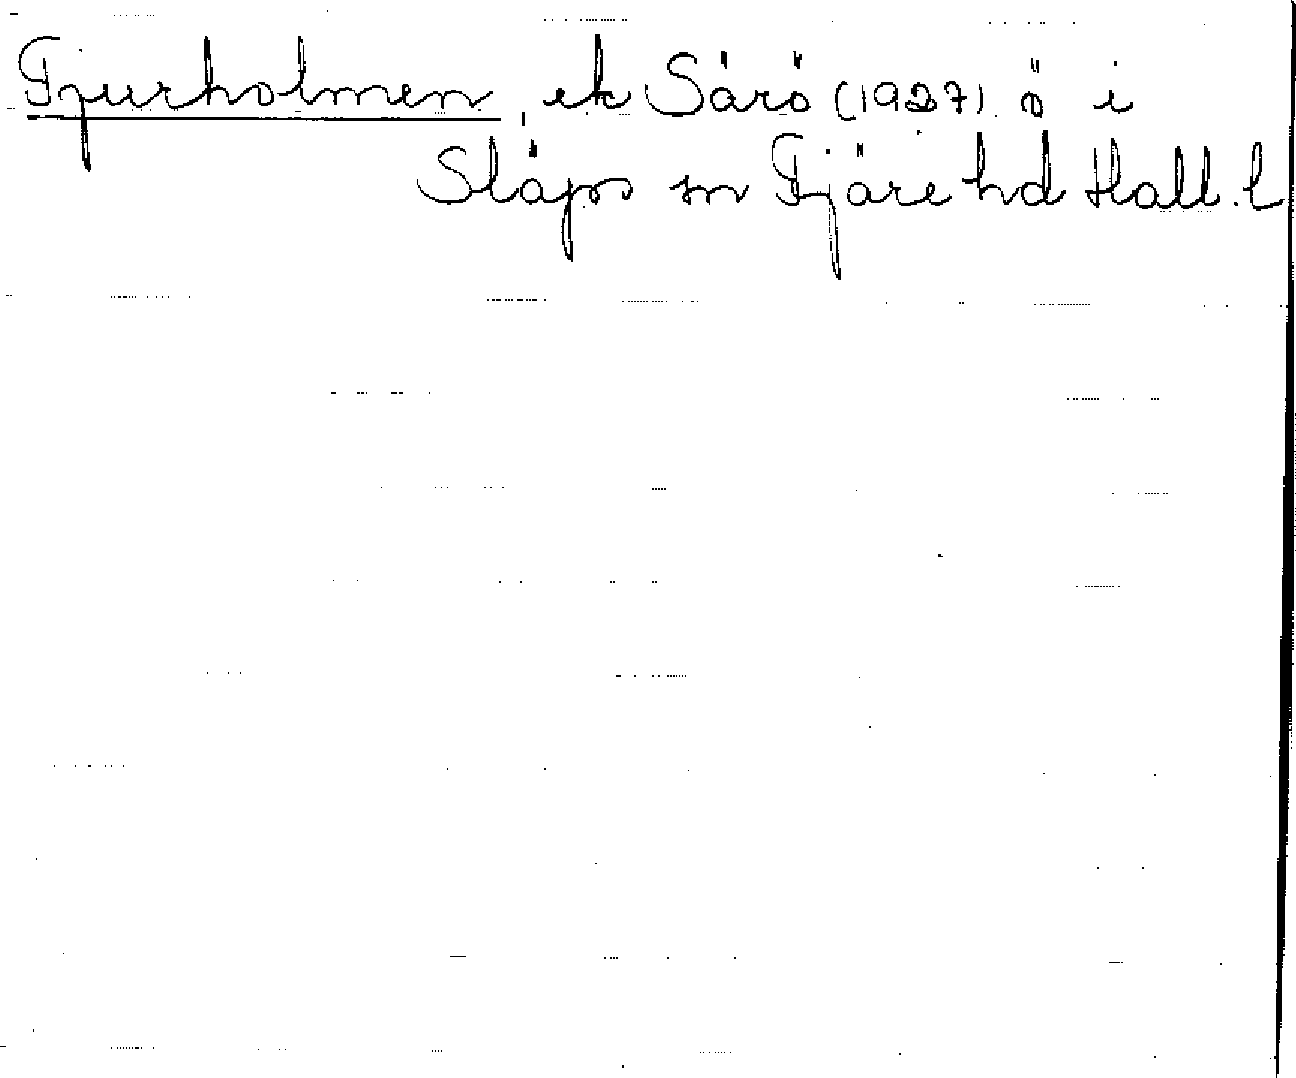 Tjurholmen, ek Särö (1927) ö i
Släps sn Fjäre hd Hall. l